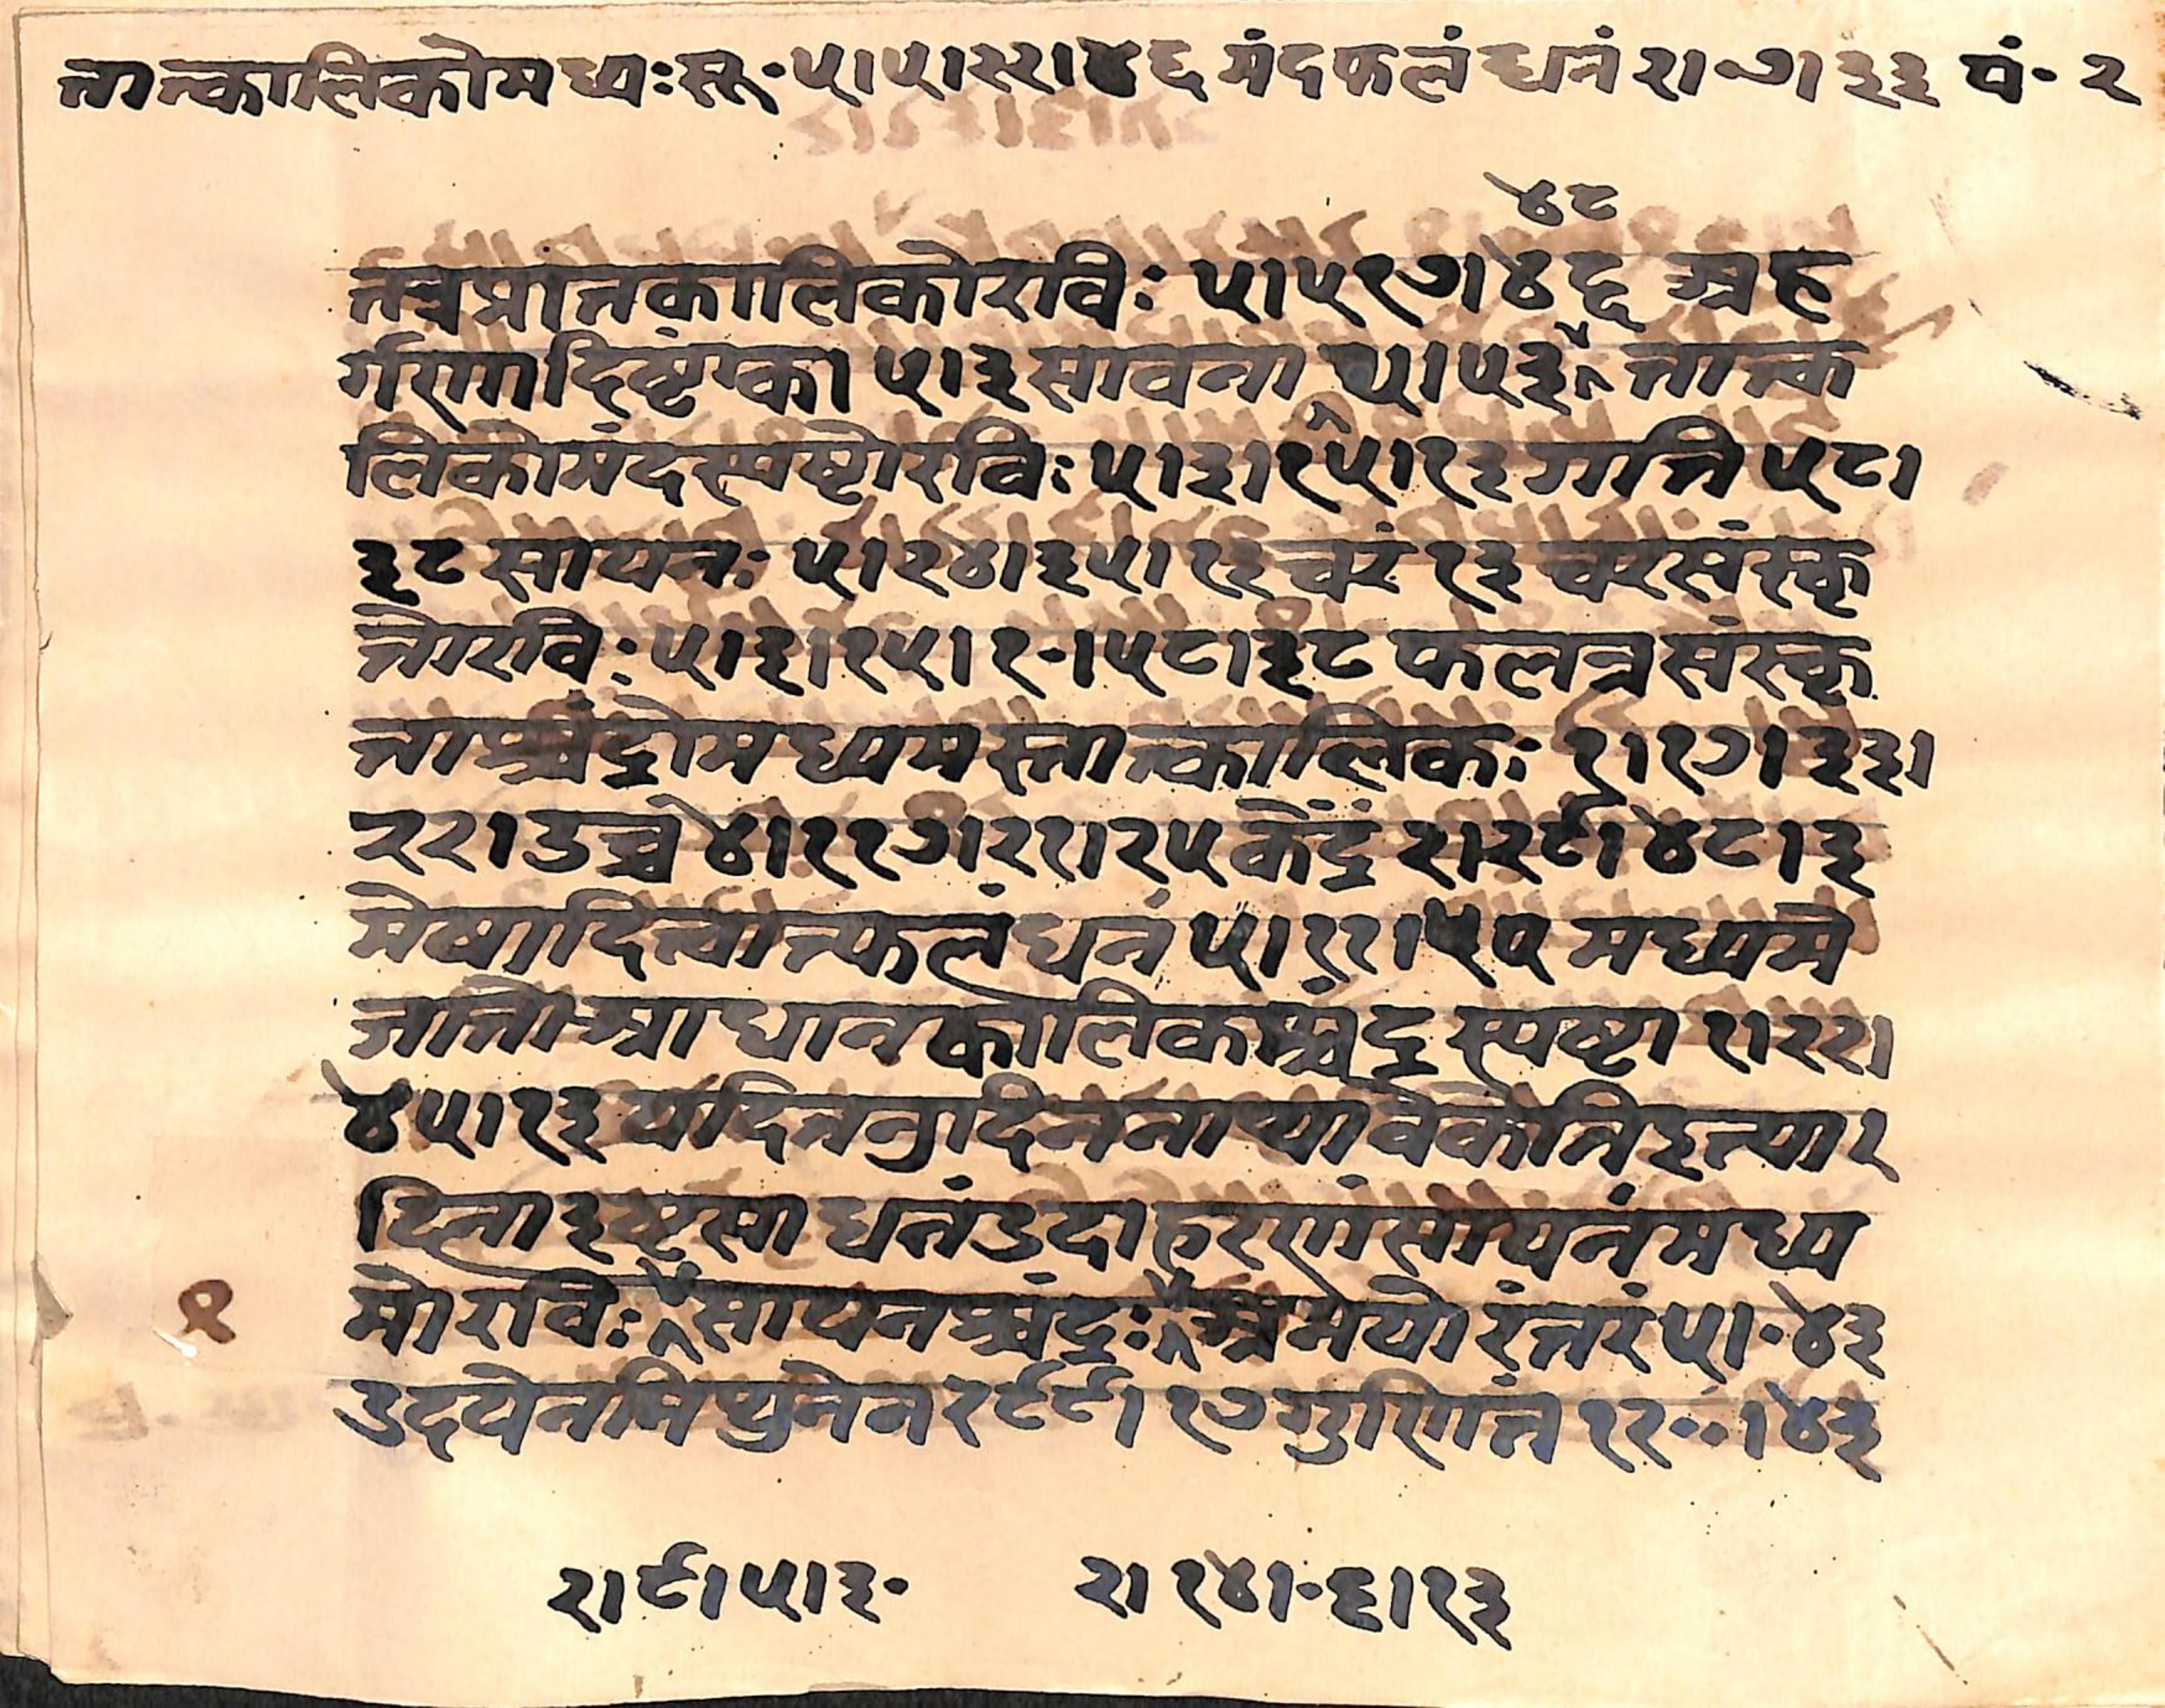 तात्कालिकोमध्यः सू॰ ५।५।२२।४६ मंदफलं धनं २।॰७।३३ पं॰ २
४८
तत्रप्रातःकालिकोरविः ५।५१७।४६ अह
र्गणादिष्टका ५।३ सावना ५।५३ तात्का
लिकोमंदस्पष्टोरविः ५।३।१५।१३ गति ५८।
३८ सायनः ५।२४।३५।१३ चरं १३ चरसंस्कृ
तोरविः ५।३।१५।१॰।५८।३८ फलत्रसंस्कृ
ताश्चंद्रोमध्यमस्तात्कालिकः १।१७।३३।
२२।उच्च ४।११७।२१।२५ केंद्रं २।२९।४८।३
मेषादित्वात्फलं धनं ५।११।५५ मध्यमे
जातोआधानकालिकाश्चंद्र स्पष्टा १।२२।
४५।१३ यदितनुदिननाथावेकेतिइत्या१
दिना इष्टसाधनंउदाहरणंसायनंमध्य
मोरविः सायनश्चंद्रः अनयोरंतरं ५।॰४३
१
उदयेनमिथुनेन २९९।१७ गुणितं १२॰॰।४३
२।९।५।३॰ २।१४।॰६।१३